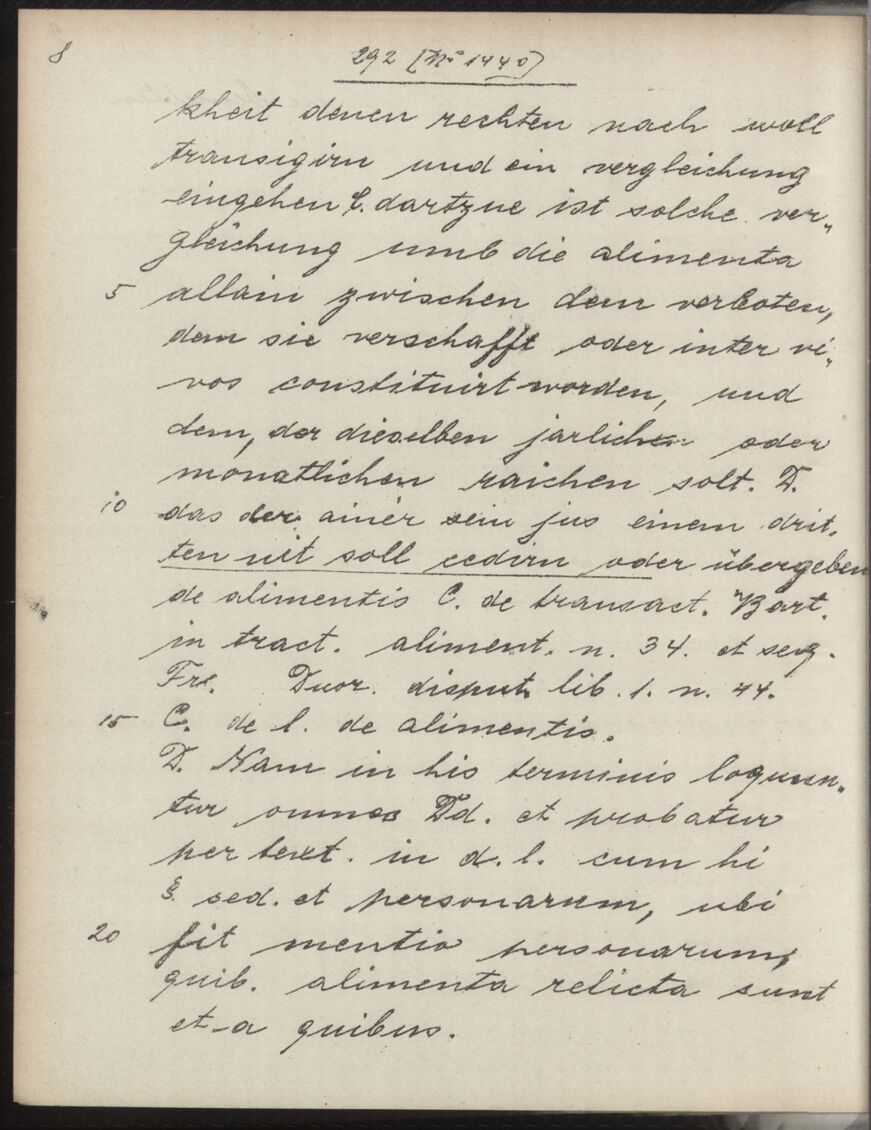 8
292 [No 1440]
kheit denen rechten nach woll
transigirn und ein vergleichung
eingehen C. dartzue ist solche ver„
gleichung umb die alimenta
5 allain zwischen dem verboten,
dem sie verschafft oder inter vi„
vos constituirt worden, und
dem, der dieselben jarlich oder
monatlichen raichen solt. D.
10 das der ainer sein jus einem drit„
ten nit soll cedirn oder übergeben
de alimentis C. de transact. Bart.
in tract. aliment. n. 34. et seq.
Duor. disput. lib. 1. n. 44.
15 C. de l. de alimentis.
D. Nam in his terminis loquun„
tur omnes Dd. et probatur
per text. in d. l. cum hi
§. sed. et personarum, ubi
20 fit mentio personarum,
quib. alimenta relicta sunt
et a quibus.